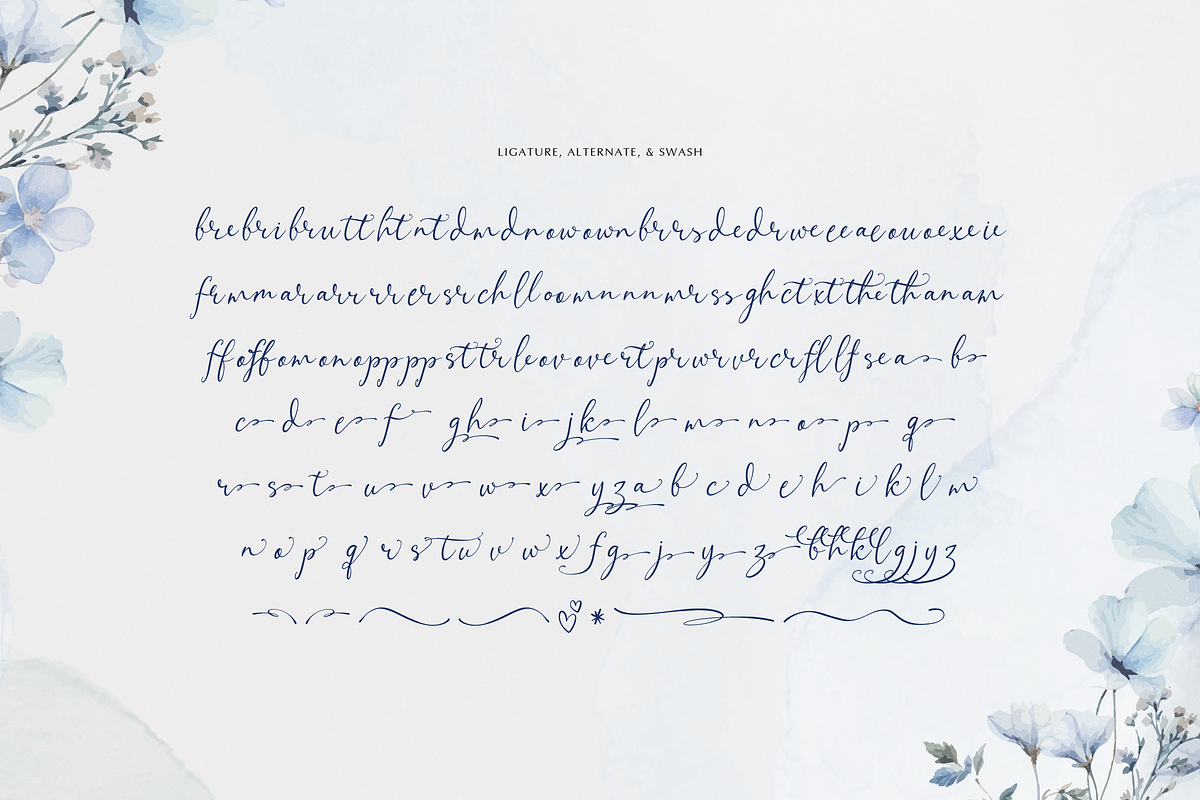 LIGATURE, ALTERNATE, & SWASH
brebribruttthtntdmdnowownbrrsdedrweeeaeouoexeie
frmmararrrrrersrchlloomnnnmrssghctxtthethanam
ffoffomonopppppsttrleovovertprwrvrcrfllfsea b
c d e f g h i j k l m n o p q
r s t u v w x y z a b c d e h i k l m
n o p q r s t u v w x f g j y z b h k l g j y z
*